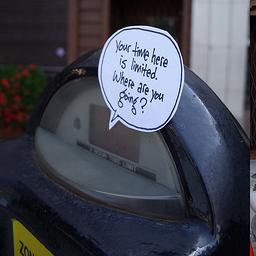 your time here
is limited.
Where are you
going?
ZON